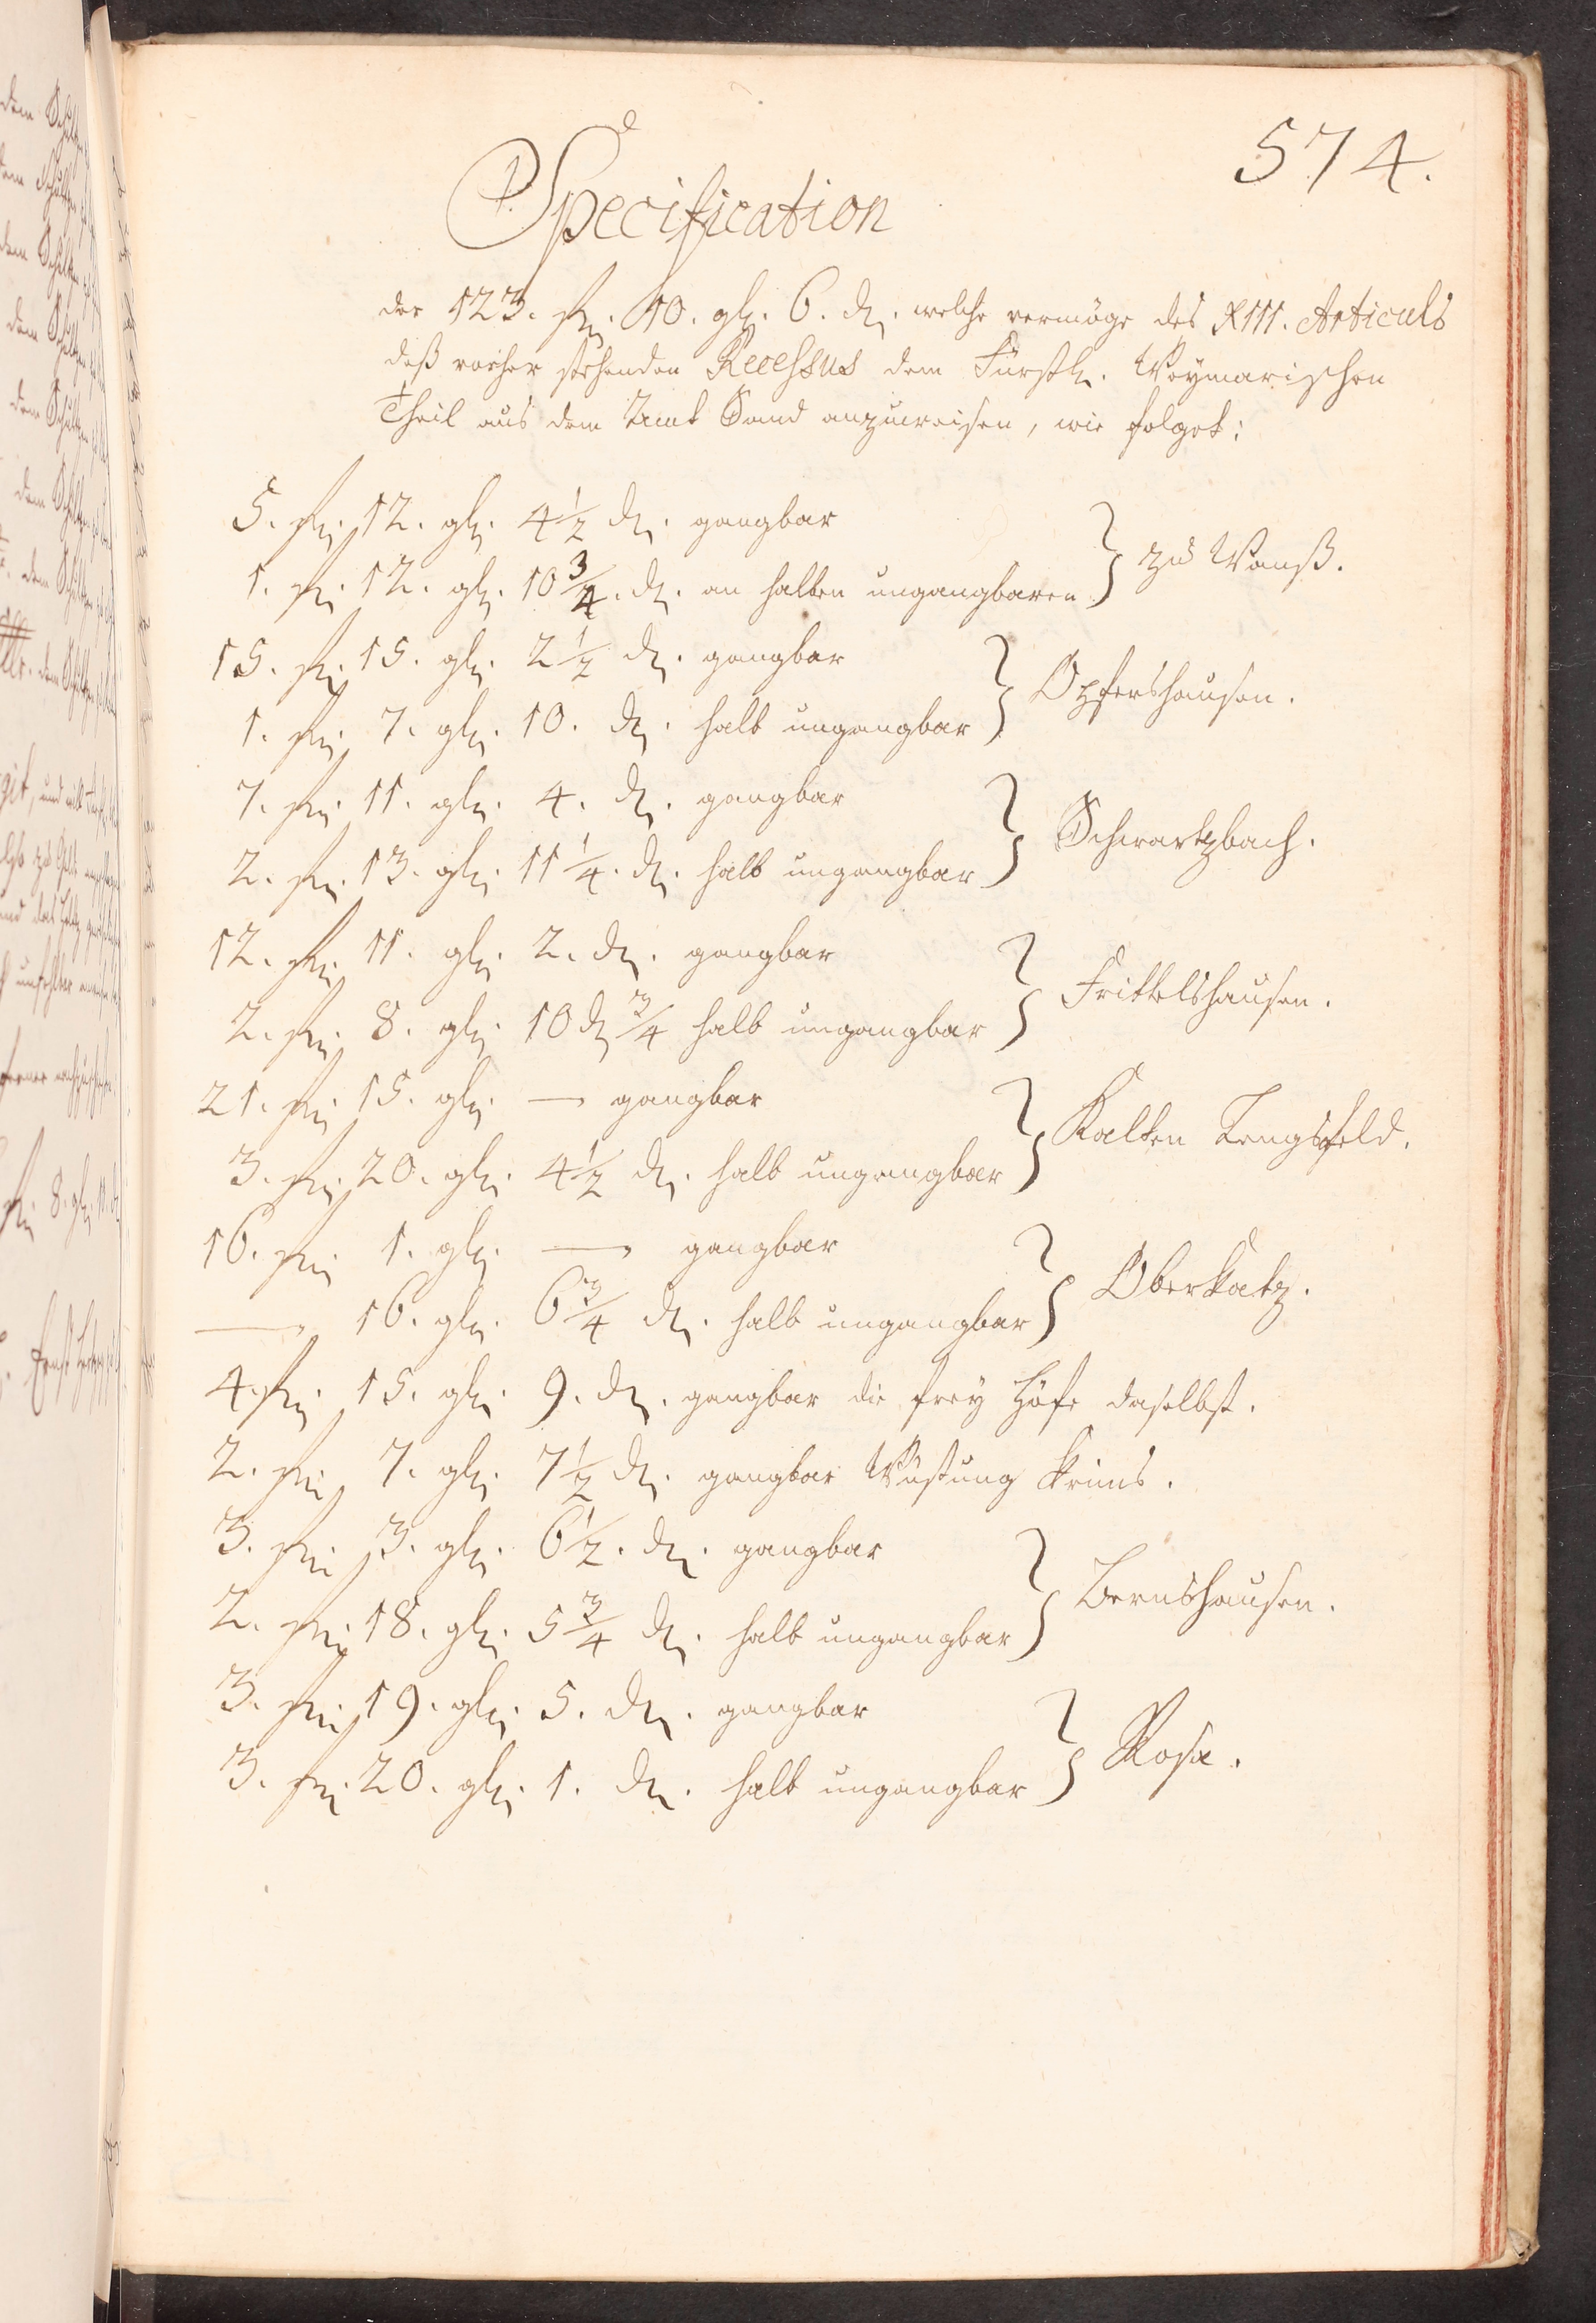 574.
Specification
der 123. fl. 10. gl. 6. d. welche vermöge des XIII. Articuls
deß vorher stehenden Recessus dem Fürstl. Weymarischen
Theil aus dem Amt Sand anzuweisen, wie folget:
5. fl. 12. gl. 4 1/2 d. gangbar
1. fl. 12. gl. 10 3/4. d. an halben ungangbaren } zu Wanß.
15. fl. 15. gl. 2 1/2 d. gangbar
1. fl. 7. gl. 10. d. halb ungangbar } Opfershausen.
7. fl. 11. gl. 4. d. gangbar
2. fl. 13. gl. 11 1/4. d. halb ungangbar } Schwartzbach.
12. fl. 11. gl. 2. d. gangbar
2. fl. 8. gl. 10 d 3/4 halb ungangbar } Frittelshausen.
21. fl. 15. gl. — gangbar
3. fl. 20. gl. 4 1/2 d. halb ungangbar } Kalten Lengsfeld.
16. fl. 1. gl. — gangbar
— 16. gl. 6 3/4 d. halb ungangbar } Oberkatz.
4. fl. 15. gl. 9. d. gangbar die frey Höfe daselbst.
2. fl. 7. gl. 7 1/2 d. gangbar Wüstung
3. fl. 3. gl. 6 1/2. d. gangbar
2. fl. 18. gl. 5 3/4 d. halb ungangbar } Bernshausen.
3. fl. 19. gl. 5. d. gangbar
3. fl. 20. gl. 1. d. halb ungangbar } Rosa.